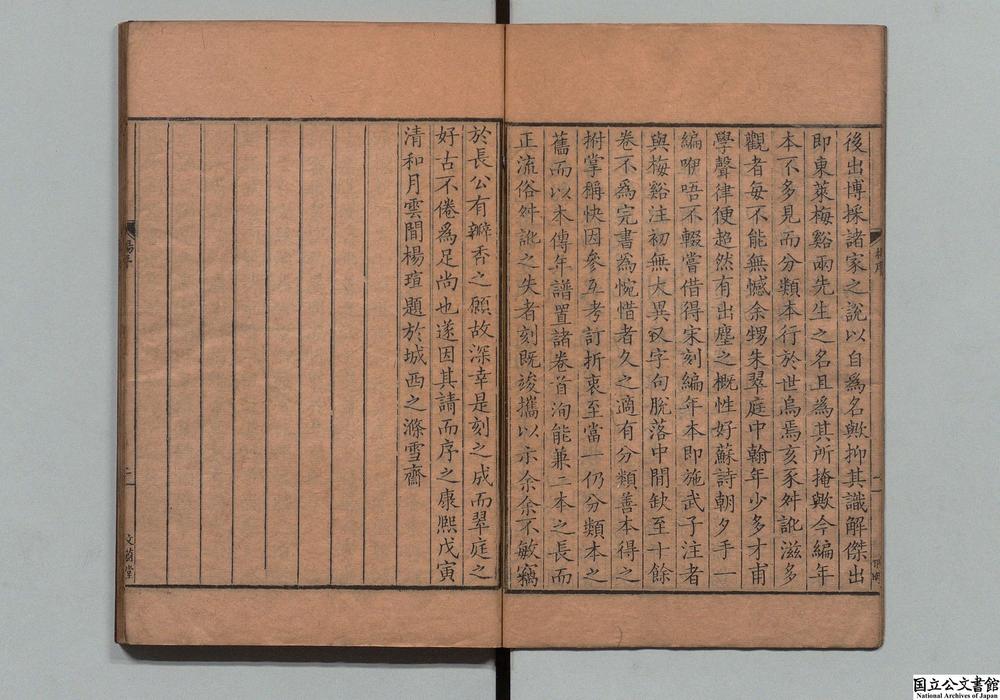 後出博採諸家之說以自爲名歟抑其識解傑出
即東萊梅谿兩先生之名且爲其所掩歟今編年
本不多見而分類本行於世烏焉亥豕舛訛滋多
觀者每不能無憾余甥朱翠庭中翰年少多才甫
學聲律便超然有出塵之槪性好蘇詩朝夕手一
編咿唔不輟嘗借得宋刻編年本即施武子注者
與梅谿注初無大異叹字句脫落中間缺至十餘
卷不爲完書爲惋惜者久之適有分類善本得之
拊掌稱快因參互考訂折衷至當一仍分類本之
舊而以本傳年譜置諸卷首洵能兼二本之長而
正流俗舛訛之失者刻既竣攜以示余余不敏竊
於長公有瓣香之願故深幸是刻之成而翠庭之
好古不倦爲足尚也遂因其請而序之康熙戊寅
清和月雲間楊瑄題於城西之滌雪齋
二
文蔚堂
国立公文書館
National Archives of Japan